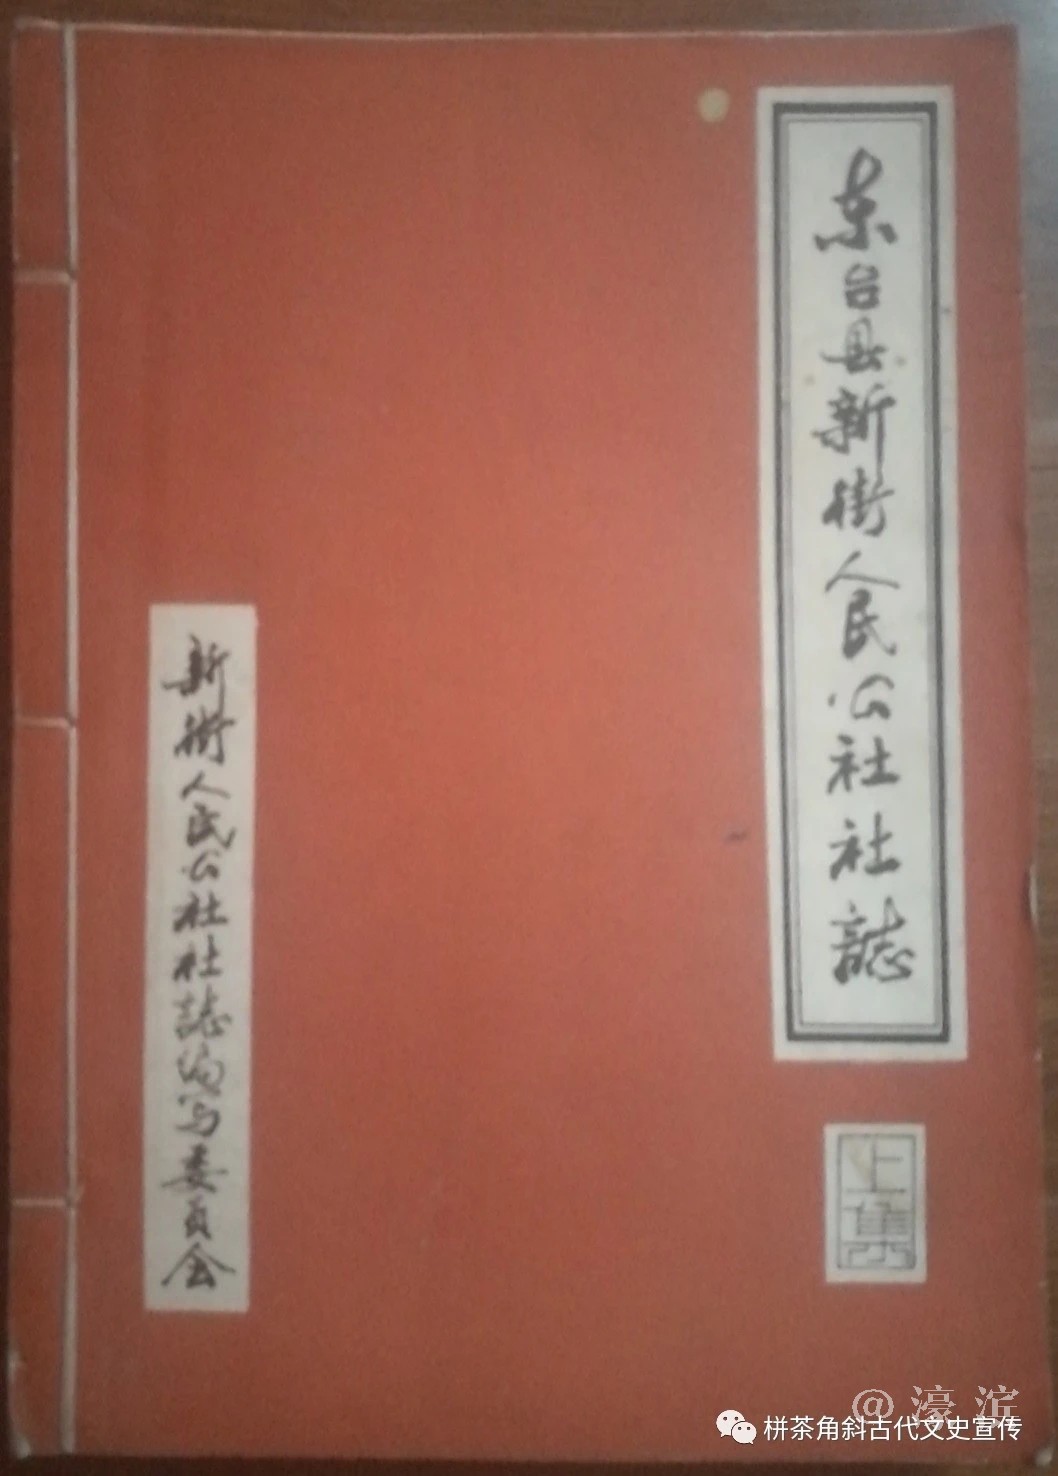 东台县新街人民公社社誌
上集
新街人民公社社誌编写委员会
@濠滨
栟茶角斜古代文史宣传